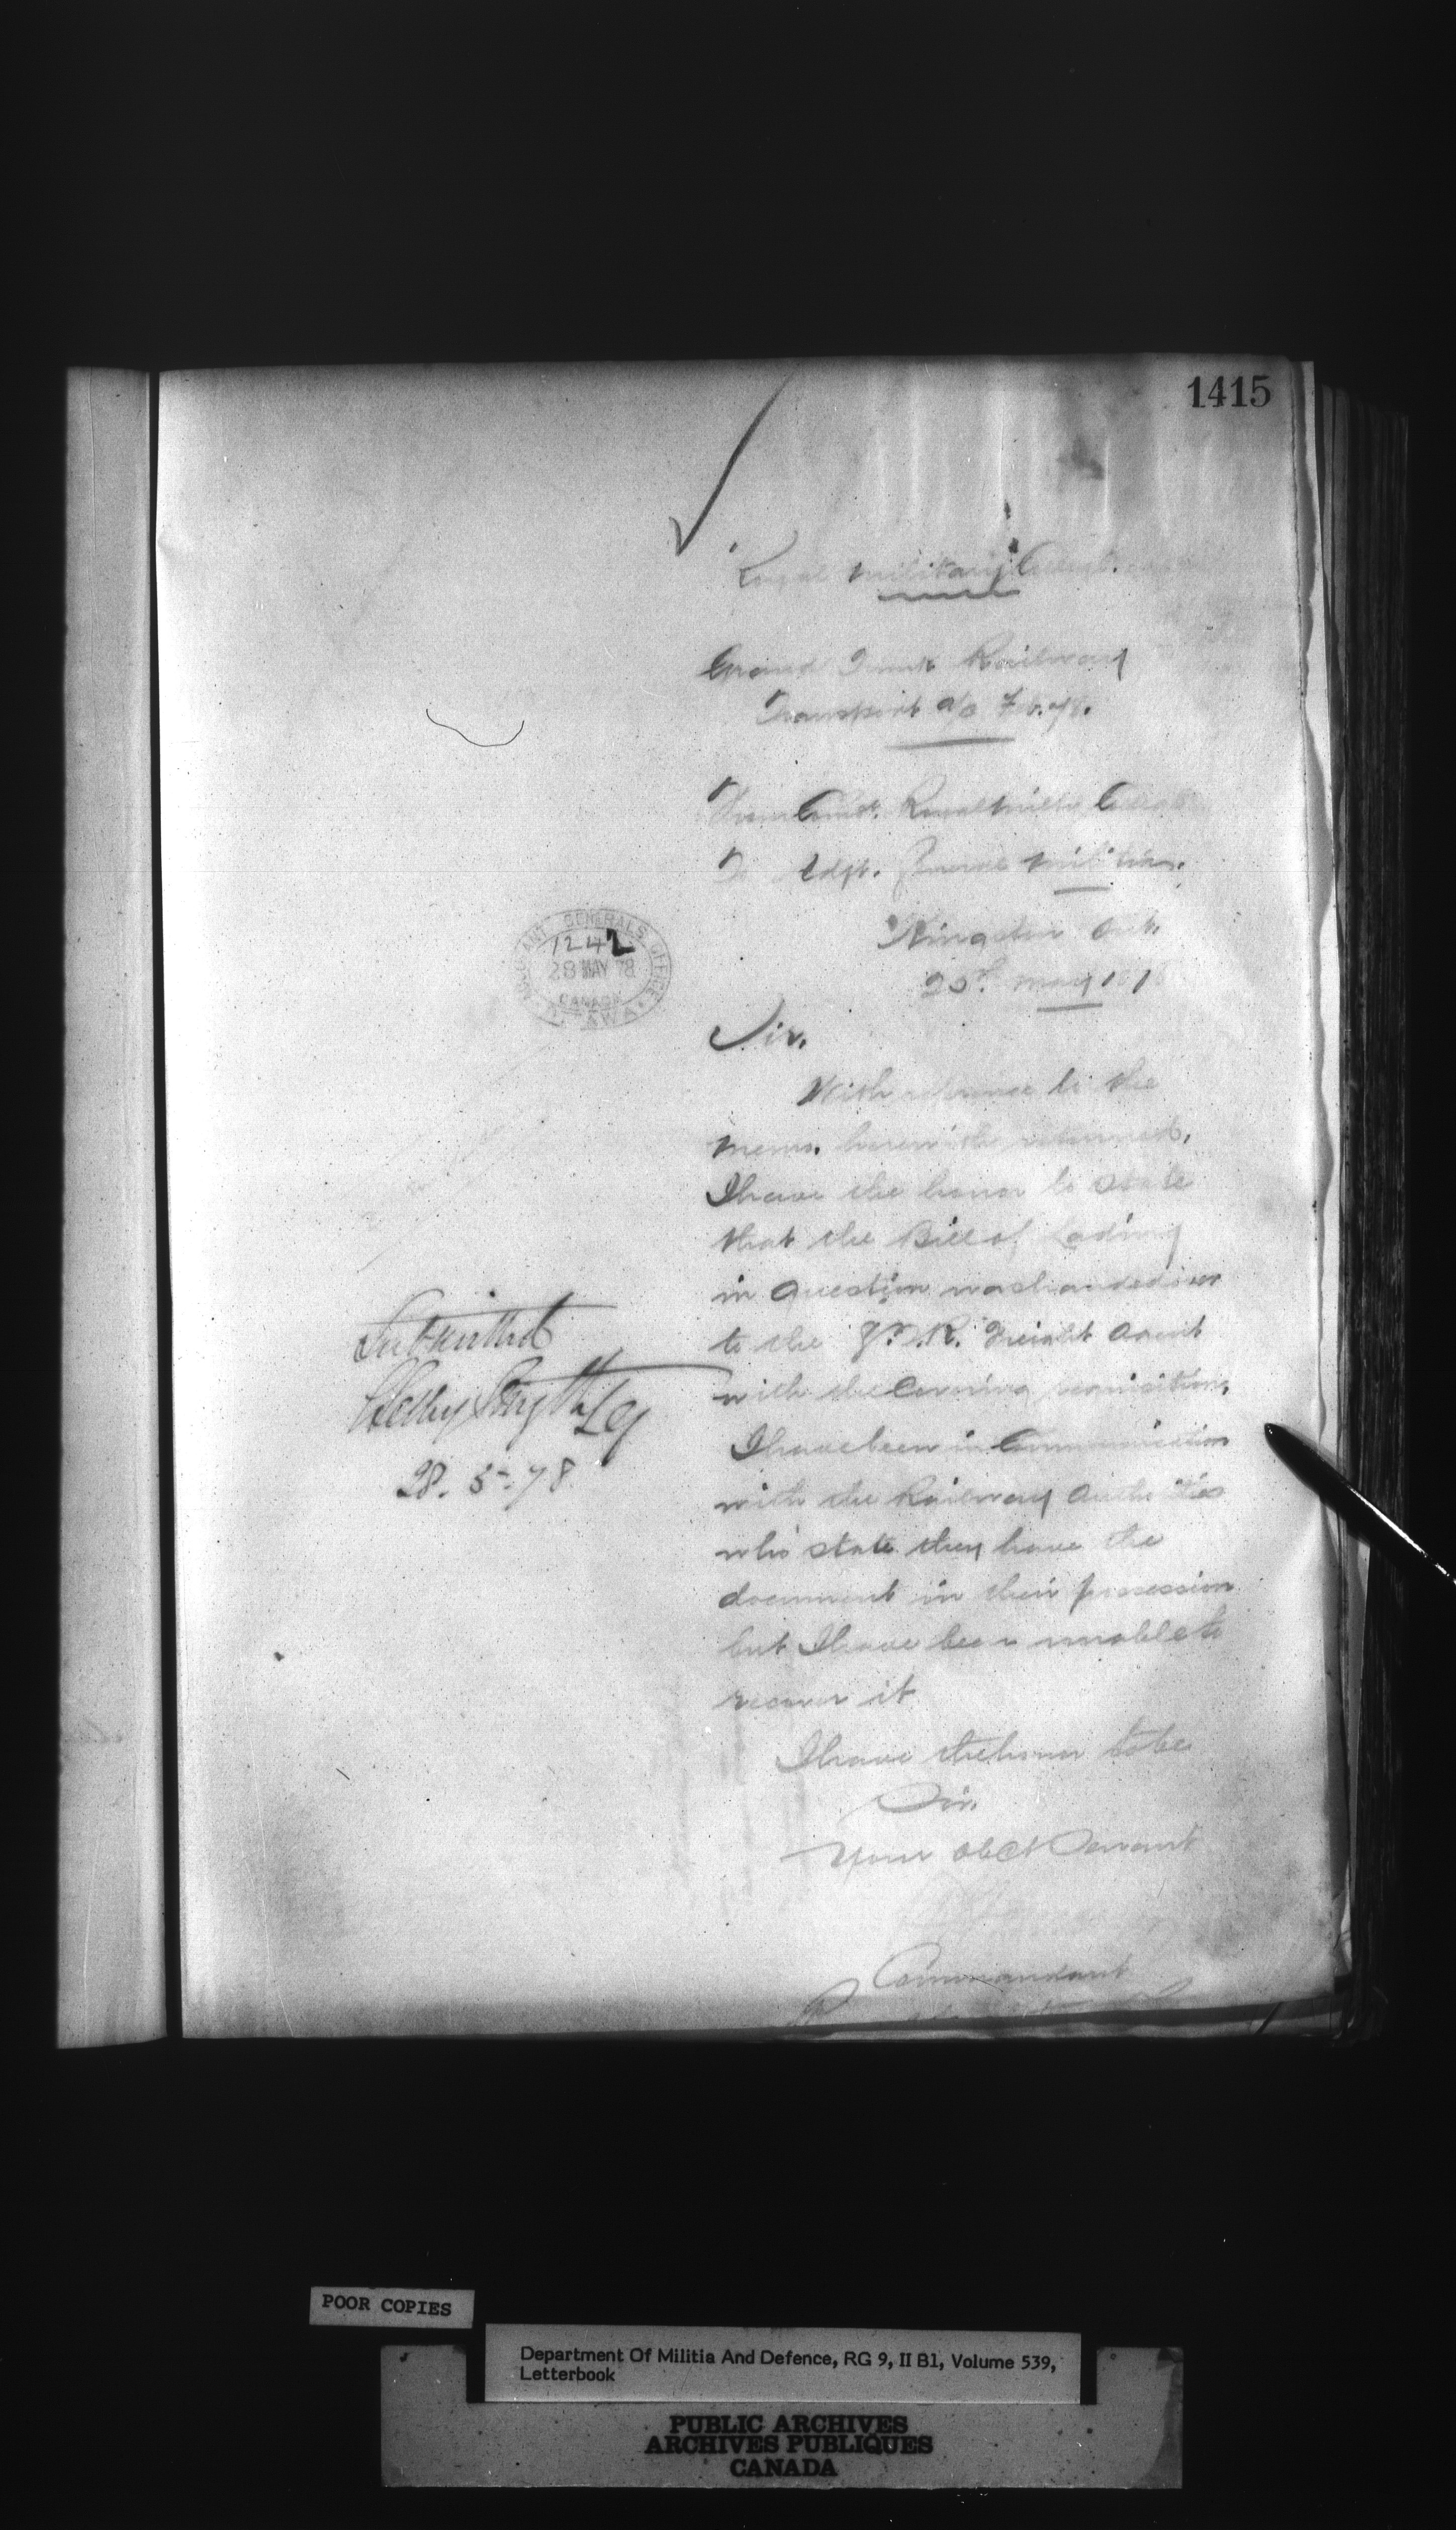 1415
Royal Military College
Grand Trunk Railway
Transport a/c
From Comdt. Royal Military College
To Adjt. General Militia.
Kingston Ont.
May
ADJUTANT GENERALS OFFICE
1242
28 MAY 78
CANADA
OTTAWA
Sir.
With reference to the
memo. herewith returned,
I have the honor to state
that the Bill of Lading
in question was handed over
to the G.T.R. Freight Agent
with the Covering requisition.
I have been in Communication
with the Railway Authorities
who state they have the
document in their possession
but I have been unable to
recover it
I have the honor to be
Sir.
Your obdt Servant
Commandant
Submitted
Selby Smyth Lg
28. 5-78
POOR COPIES
Department Of Militia And Defence, RG 9, II B1, Volume 539,
Letterbook
PUBLIC ARCHIVES
ARCHIVES PUBLIQUES
CANADA